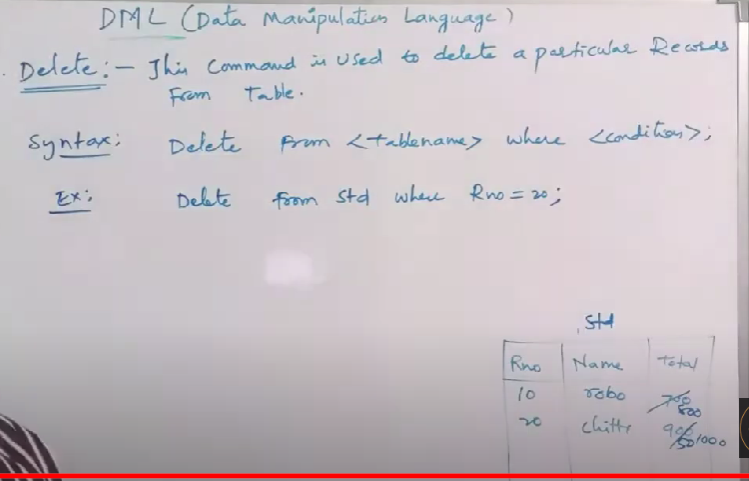 DML (Data Manipulation Language)
Delete:- This Command is used to delete a particular Records
From Table.
Syntax: Delete from <tablename> where <condition>;
Ex: Delete from std where Rno = 20;
std
Rno Name Total
10 robo 700 800
20 chitti 900 1000